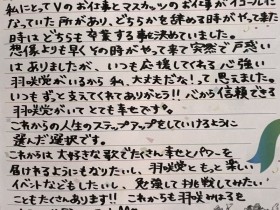 私にとってVのお仕事とマスカッツのお仕事がイコールに
なっていた所があり、どちらかを辞める時がやって来た
時はどちらも卒業する事に決めていました。
想像よりも早くその時がやって来て突然で戸惑い
はありましたが、いつも応援してくれる心強い
羽咲党がいるから「私、大丈夫だな!」って思えました。
いつもずっと支えてくれてありがとう!!心から信頼できる
羽咲党がいてとても幸せです。
これからの人生のステップアップをしていけるように
選んだ選択です。
これからは大好きな歌でたくさん幸せとパワーを
届けれるようにもなりたいし、羽咲党ともっと楽しい
イベントなどもしたいし、勉強して挑戦してみたい
こともたくさんあります!! これからも羽咲みはるを